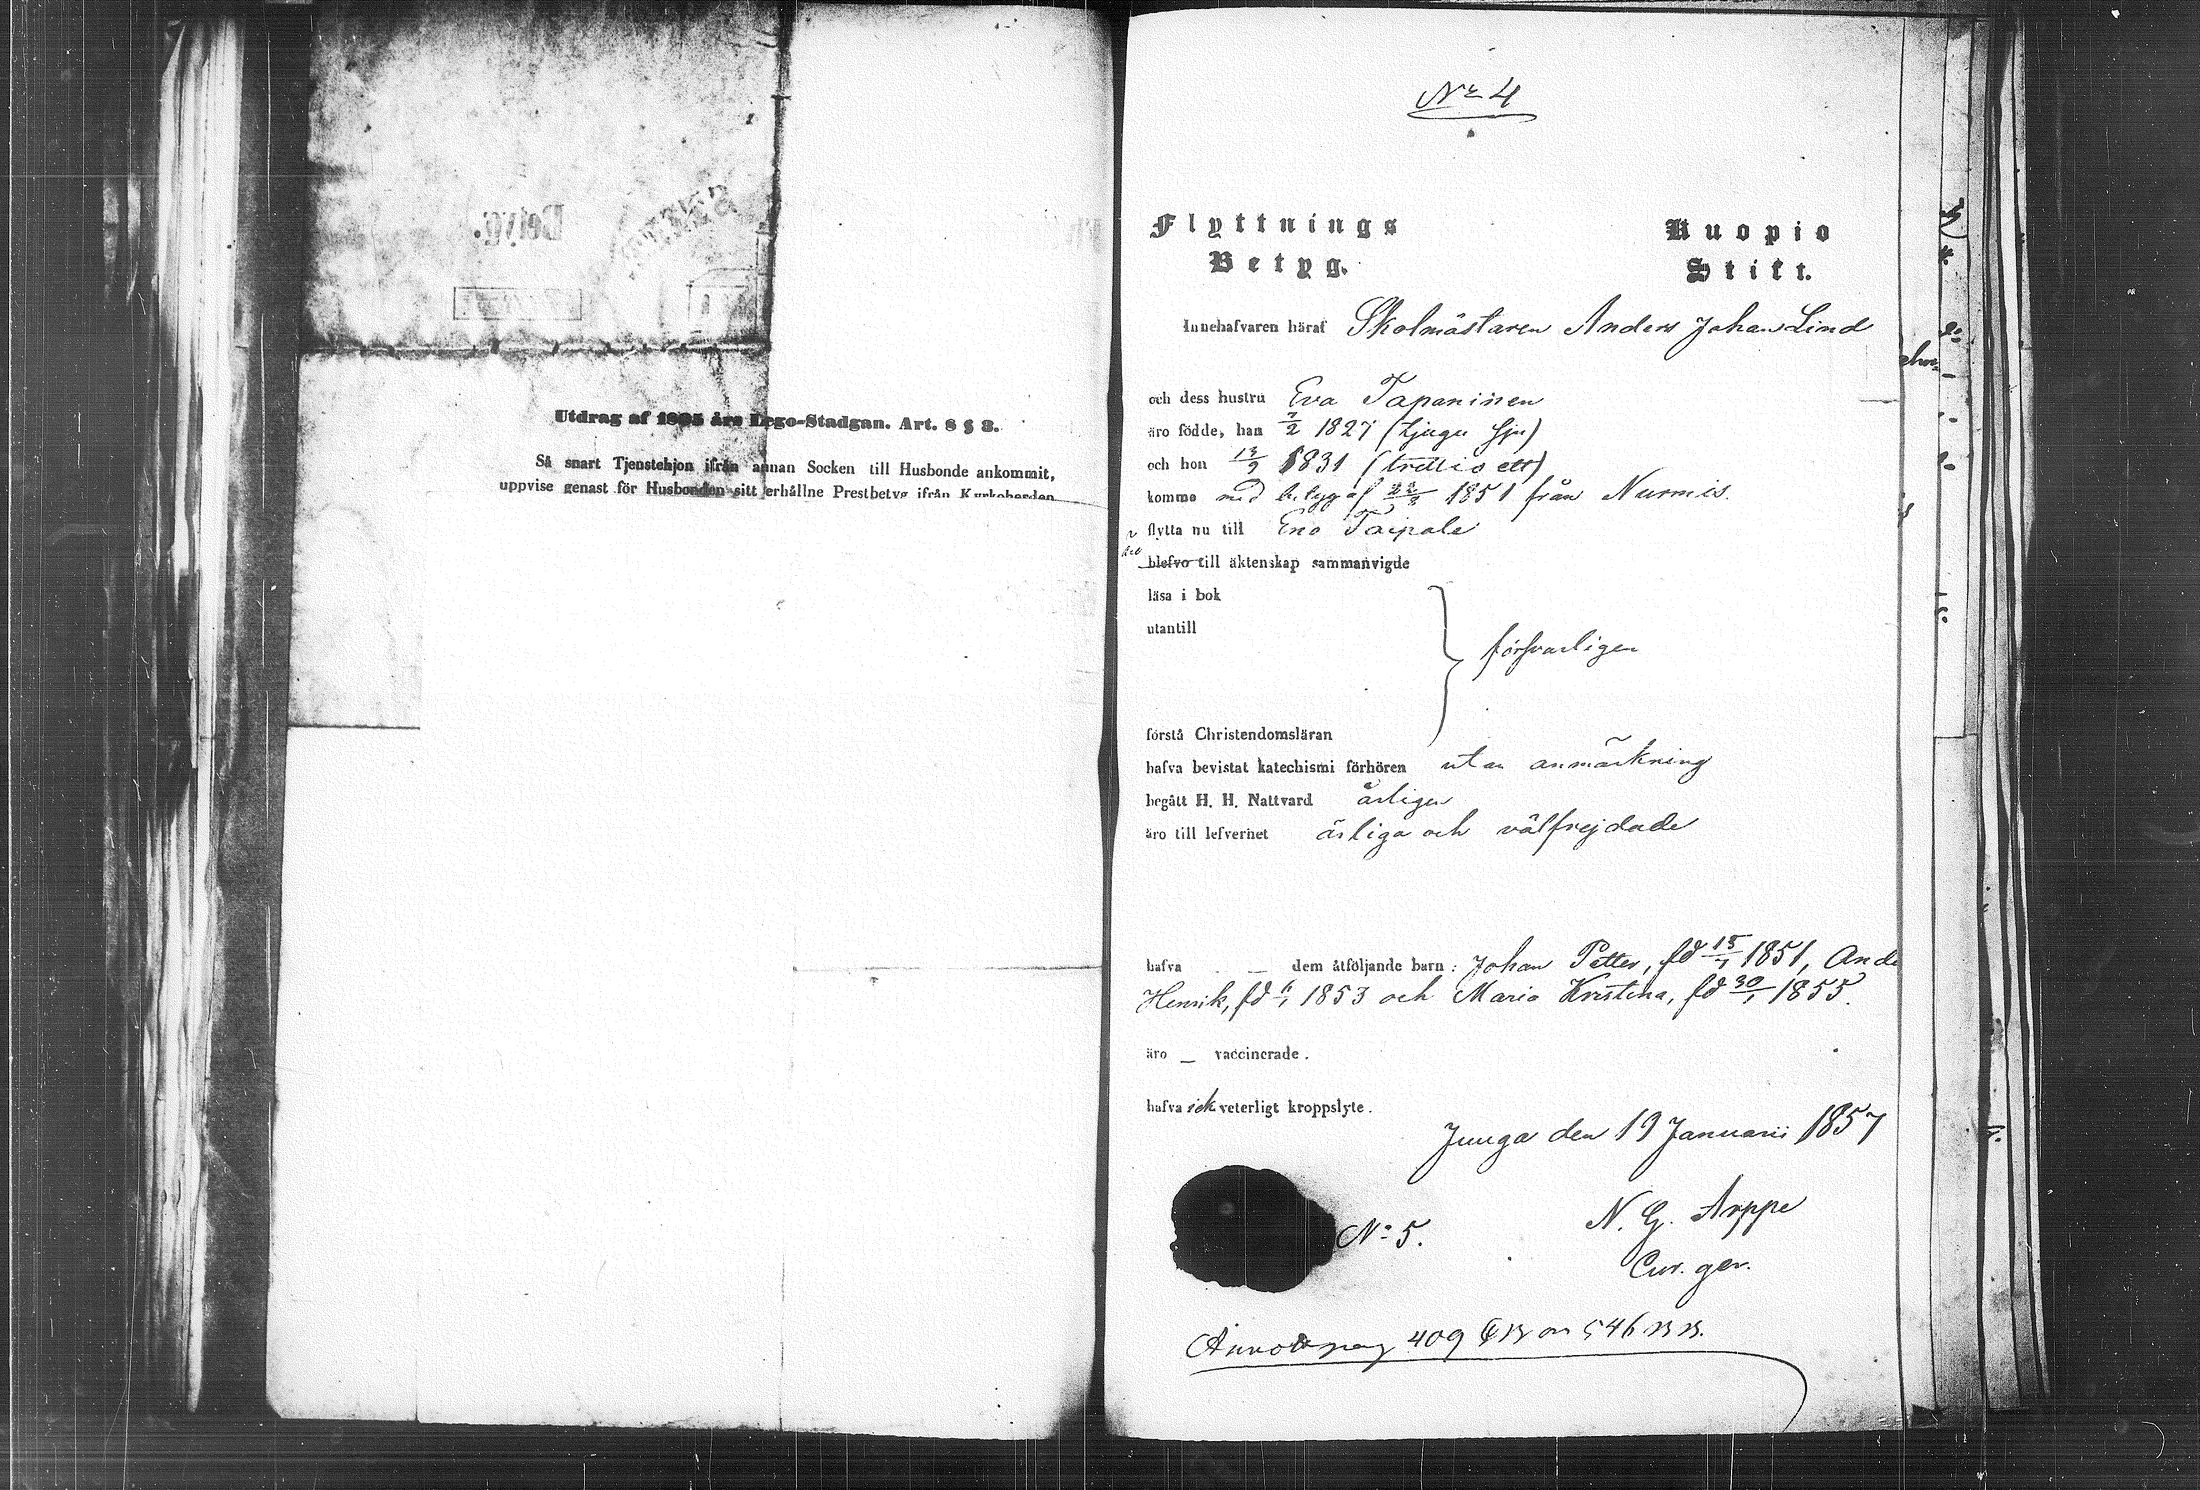 Betyg.
Utdrag af 1805 års Lego-Stadgan. Art. 8 § 3.
Så snart Tjenstehjon ifrån annan Socken till Husbonde ankommit,
uppvise genast för Husbonden sitt erhållne Prestbetyg ifrån Kyrkoherden
No 4
Flyttnings Kuopio
Betyg. Stift.
Innehafvaren häraf Skolmästaren Anders Johan Lind
och dess hustru Eva Tapaninen
äro födde, han 7/2 1827 (tjugu sju)
och hon 13/9 1831 (trettio ett)
komme med betyg af 22/3 1851 från Nurmis.
flytta nu till Eno Taipale
äro
blefvo till äktenskap sammanvigde
läsa i bok
utantill
försvarligen
förstå Christendomsläran
hafva bevistat katechismi förhören utan anmärkning
begått H. H. Nattvard årligen
äro till lefvernet ärliga och välfrejdade
hafva — dem åtföljande barn: Johan Petter, fd 15/7 1851, And
Henrik, fd 6/1 1853 och Maria Kristina, fd 30/1 1855.
äro — vaccinerade.
hafva ick veterligt kroppslyte.
Juuga den 19 Januarii 1857
N. G. Arppe
No 5.
Cur. ger.
409 546